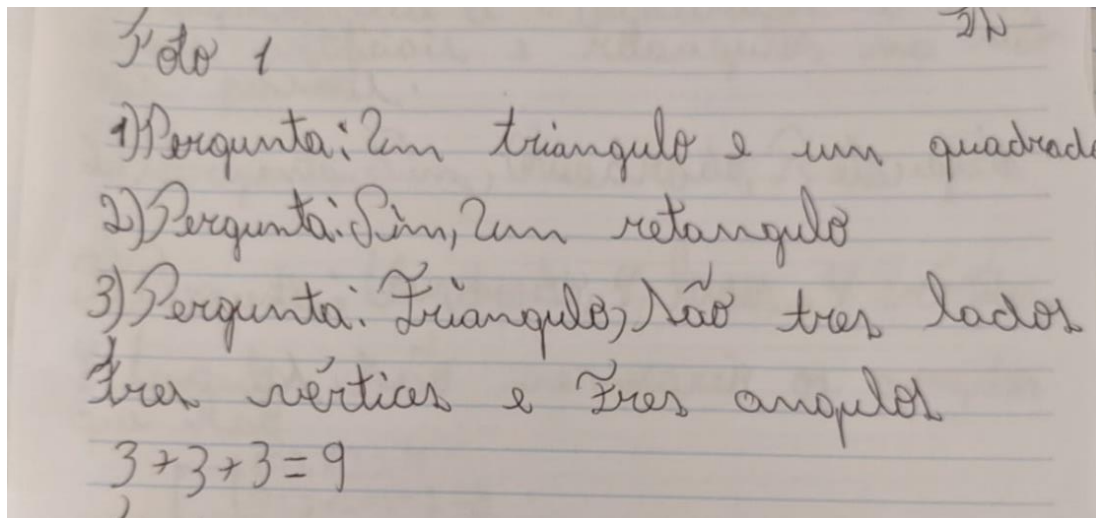 Foto 1
1) Pergunta: Um triangulo e um quadrado
2) Pergunta: Sim, Um retangulo
3) Pergunta: Triangulo, são tres lados
tres vértices e Tres angulos
3+3+3=9